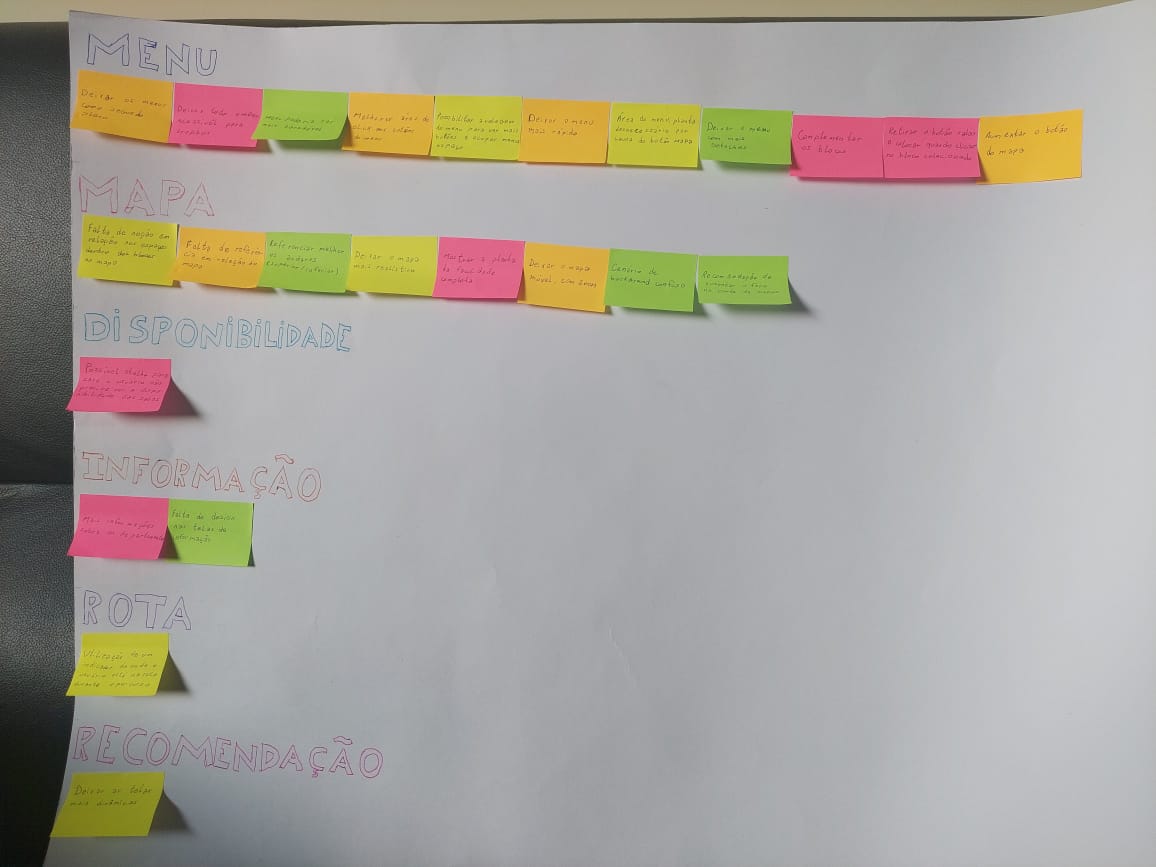 MENU
Deixar os menus
como
Deixar
acessível para
Menu poderia ser
mais
Melhorar área de
click nos botões
do menu
Possibilitar
do menu para ver mais
botões e ocupar menos
espaço
Deixar o menu
mais rápido
Área do menu planta
desnecessária por
causa do botão mapa
Deixar o menu
com mais
detalhes
Complementar
os blocos
Retirar o botão salas
e colocar quando clicar
no bloco selecionado
Aumentar o botão
do mapa
MAPA
Falta de noção em
relação aos espaços
dentro dos blocos
no mapa
Falta de referên-
cia em relação ao
mapa
Referenciar melhor
os andares
(superior/inferior)
Deixar o mapa
mais realístico
Mostrar a planta
da faculdade
completa
Deixar o mapa
móvel, com áreas
Cenário de
background confuso
Recomendação de
aumentar o
DISPONIBILIDADE
Possível atalho para
caso o usuário não
precise ver a dispo-
nibilidade das salas
INFORMAÇÃO
Mais informações
sobre os departamentos
Falta de design
nas telas de
informação
ROTA
Utilização de um
indicador de onde o
usuário está
durante o percurso
RECOMENDAÇÃO
Deixar as
mais dinâmicas